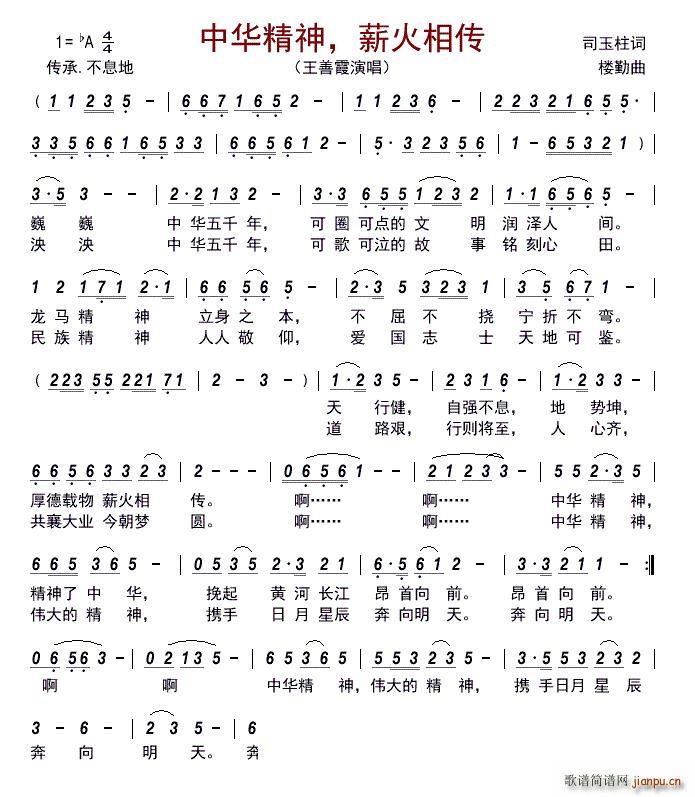 1=♭A 4/4 中华精神，薪火相传 司玉柱词
传承.不息地 （王善霞演唱） 楼勤曲
( 1 1 2 3 5 - | 6 6 7 1 6 5 2 - | 2 2 3 2 2 1 6 5 5 5 ·
3 3 5 6 6 1 6 5 3 3 | 6 6 5 6 6 1 2 - | 5 · 3 2 3 5 6 | 1 - 6 5 3 2 1 )
3 · 5 3 - - | 2 · 2 1 3 2 - | 3 · 3 6 5 5 1 2 3 2 | 1 · 1 6 5 6 5 -
巍 巍 中 华五千 年， 可 圈 可点的 文 明 润 泽人 间。
泱 泱 中 华五千 年， 可 歌 可泣的 故 事 铭 刻心 田。
1 2 1 7 1 2 · 1 | 6 6 5 6 5 - | 2 · 3 5 3 2 3 | 3 5 6 7 1 -
龙 马 精 神 立身 之 本， 不 屈 不 挠 宁 折 不 弯。
民 族 精 神 人人 敬 仰， 爱 国 志 士 天 地 可 鉴。
( 2 2 3 5 5 2 2 1 7 1 | 2 - 3 - ) | 1 · 2 3 5 - | 2 3 1 6 - | 1 · 2 3 3 -
天 行健， 自强不息， 地 势坤，
道 路艰， 行则将至， 人 心齐，
6 6 5 6 3 3 2 3 | 2 - - - | 0 6 5 6 1 - - | 2 1 2 3 3 - - | 5 5 2 · 3 5
厚德载物 薪火相 传。 啊…… 啊…… 中华 精 神，
共襄大业 今朝梦 圆。 啊…… 啊…… 中华 精 神，
6 6 5 3 2 - | 0 5 3 5 2 · 3 2 1 | 6 · 5 6 1 2 - | 3 · 3 2 1 1 - :‖
精神了 中 华， 挽起 黄 河 长江 昂 首向 前。 昂 首向 前。
伟大的 精 神， 携手 日 月 星辰 奔 向明 天。 奔 向明 天。
0 6 5 6 3 - | 0 2 1 3 5 - | 6 5 3 5 | 5 5 3 2 3 5 | 3 · 5 5 3 5 2 3
啊 啊 中华精 神，伟大的 精 神， 携 手日月 星 辰
3 - 6 - | 5 - 2 - | 6
奔 向 明 天。 奔
歌谱简谱网
jianpu.cn